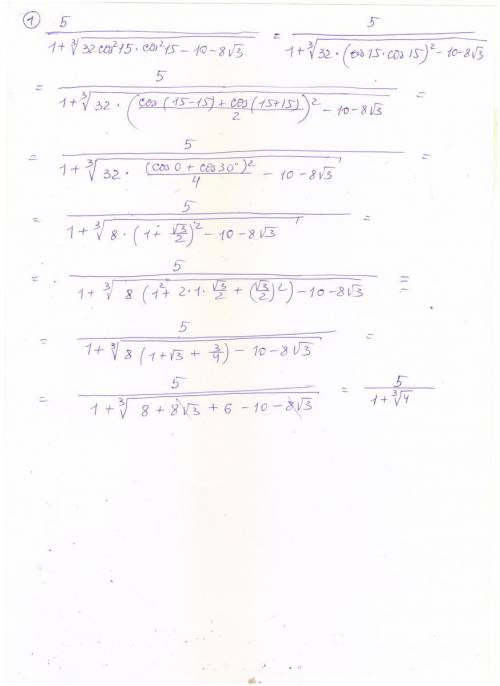 ① 5/(1+∛(32cos²15·cos²15 − 10 − 8√3)) = 5/(1+∛(32·(cos15·cos15)² − 10 − 8√3))
= 5/(1+∛(32·((cos(15−15)+cos(15+15))/2)² − 10 − 8√3)) =
= 5/(1+∛(32·(cos0+cos30°)²/4 − 10 − 8√3)) =
= 5/(1+∛(8·(1+√3/2)² − 10 − 8√3)) =
= 5/(1+∛(8(1²+2·1·√3/2+(√3/2)²) − 10 − 8√3)) =
= 5/(1+∛(8(1+√3+3/4) − 10 − 8√3)) =
= 5/(1+∛(8+8√3+6−10−8√3)) = 5/(1+∛4)